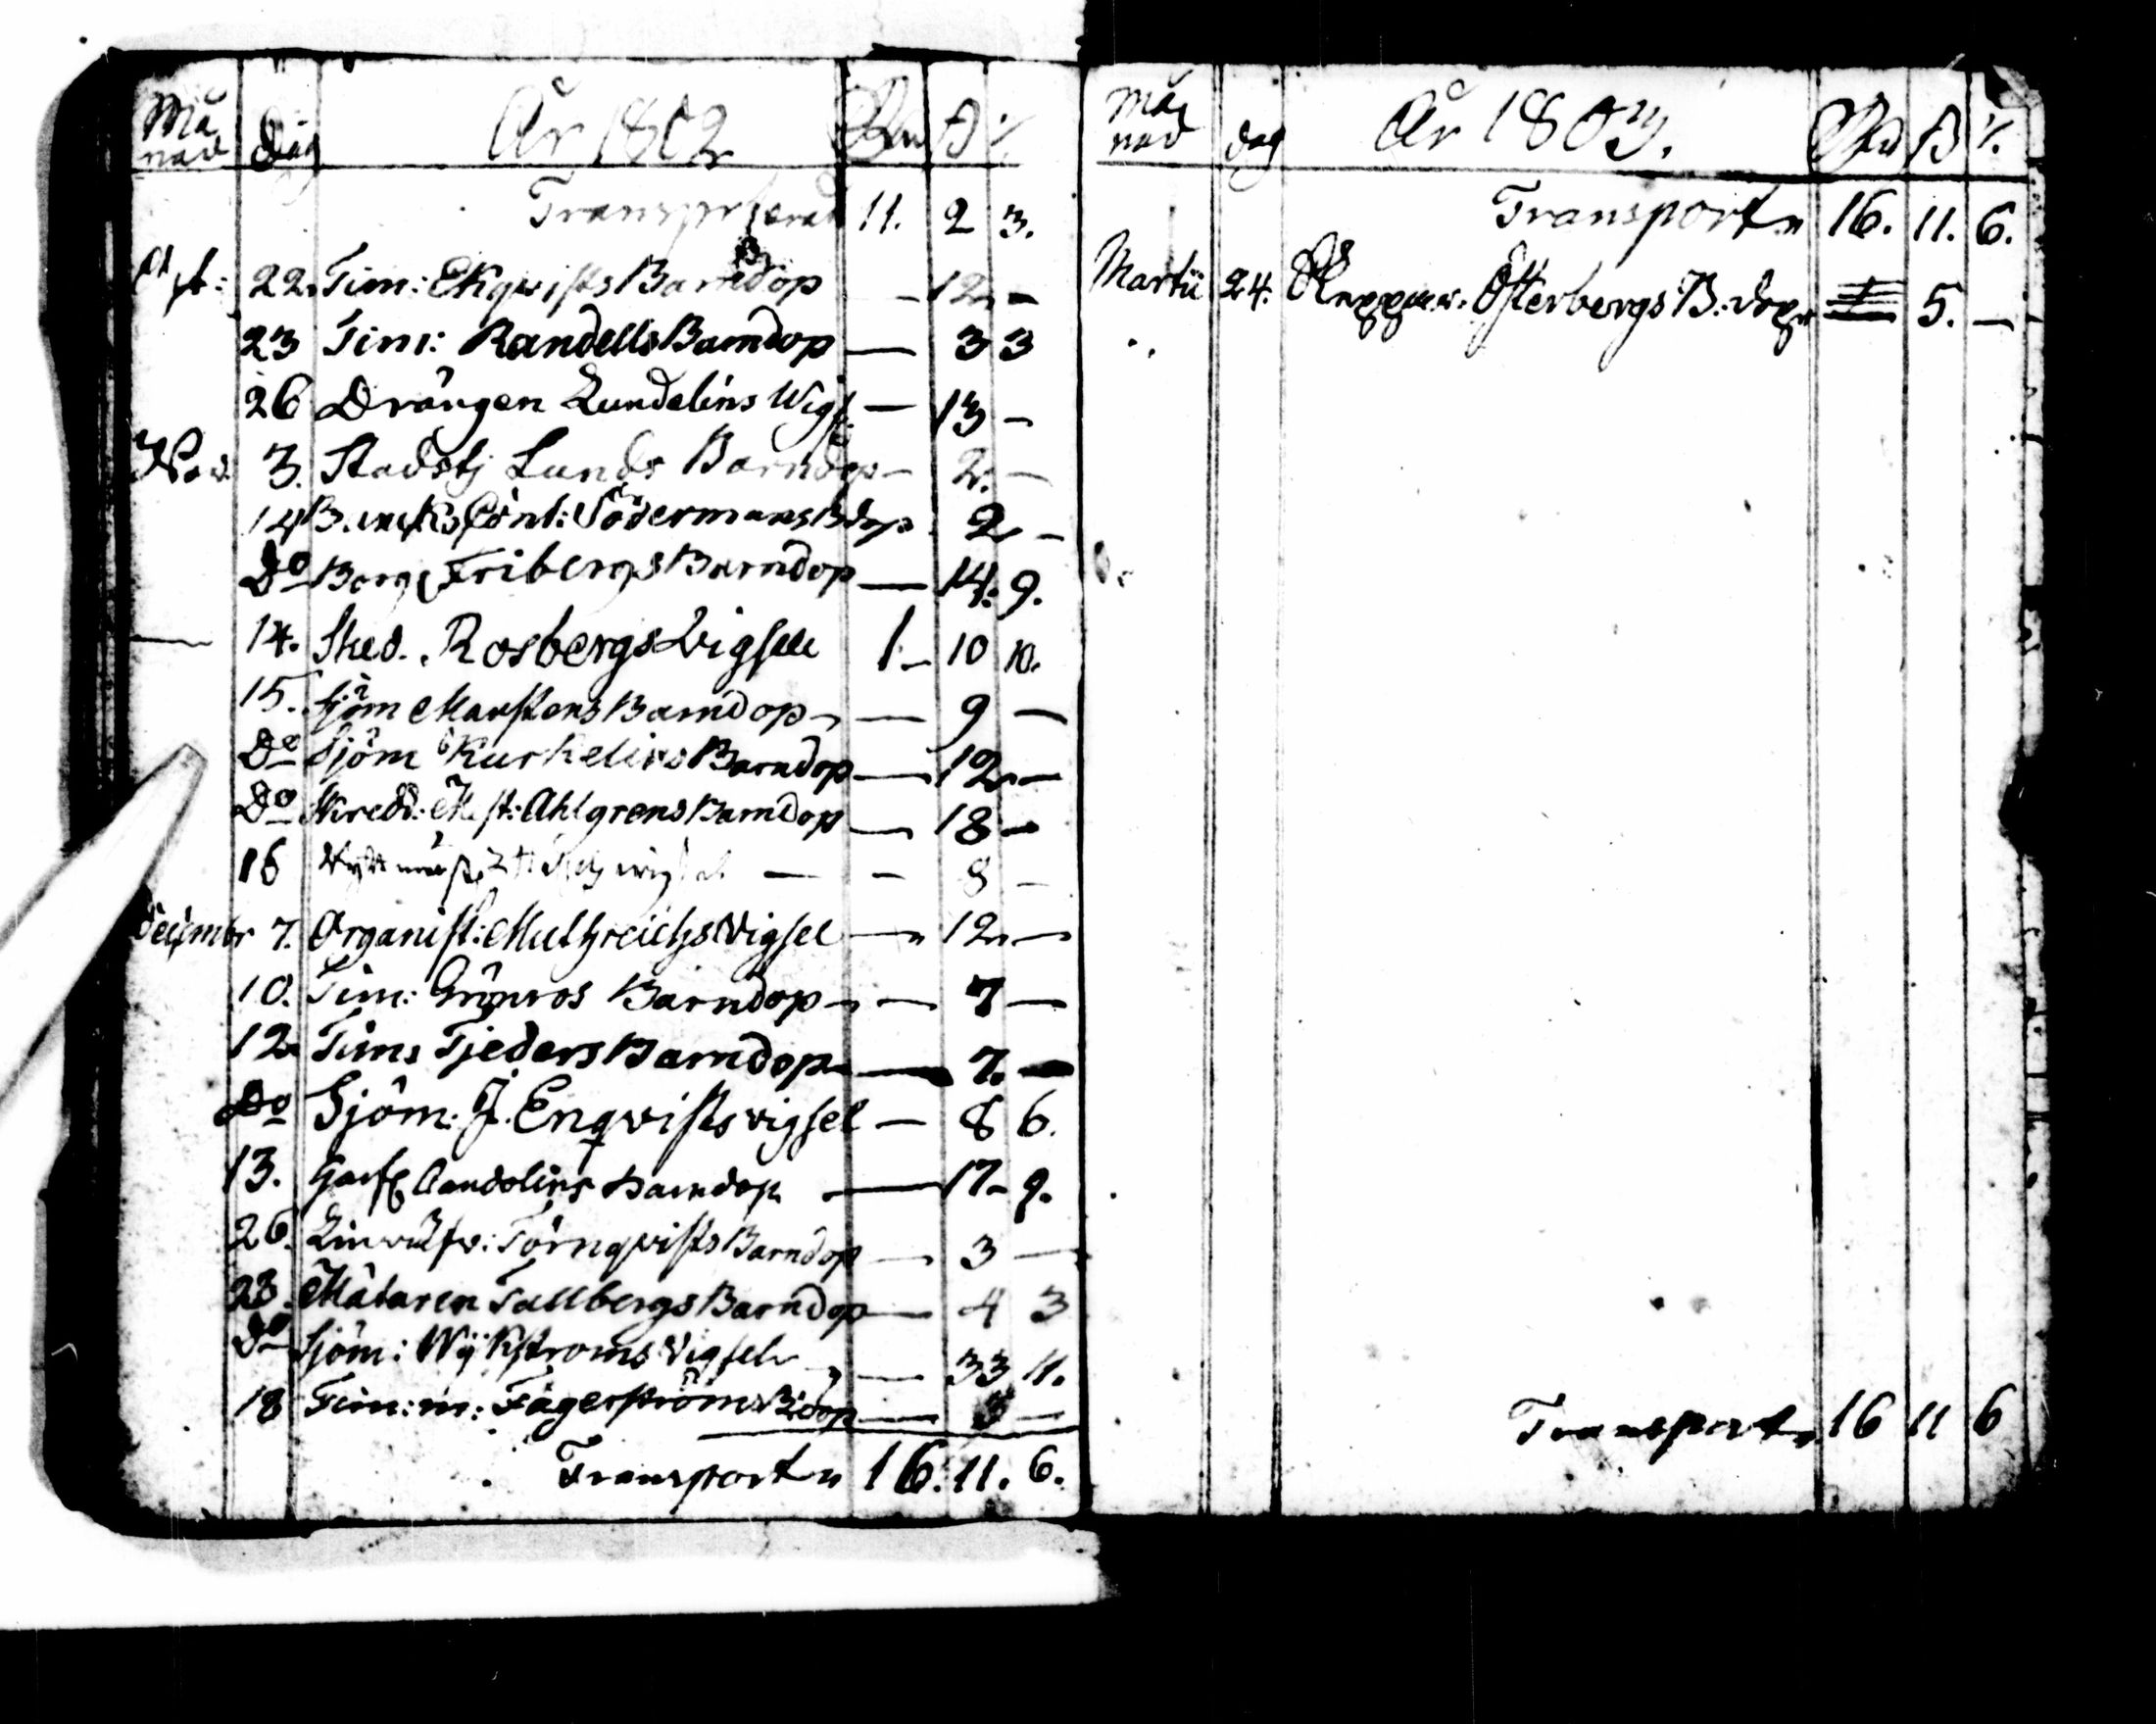 Må nad Dag År 1802 ß
Transporterat 11. 2 3.
22. Tim: Ekqvists Barndop — 12 —
23 Tim: Randells Barndop — 3 3
26 Drängen Lundelins Wigs — 13 —
Nov. 3. Stadstj Lunds Barndop — 2. —
14 Södermans Bdop 2 —
Do Borg Fribergs Barndop — 14. 9.
— 14. Sked. Rosbergs Vigsel 1 — 10 10.
15. Sjöm Marstens Barndop — 9 —
Do Sjöm Kurkelins Barndop — 12 —
Do Skredd: Mest: Ahlgrens Barndop — 18 —
16 — — 8 —
Decembr 7. Organist: Vigsel — 12 —
10. Tim: Barndop — 7 —
12 Tims Tjeders Barndop — 7. —
Do Sjöm: J. Enqvists vigsel — 8 6.
13. Barndop — 17 - 9.
26. Törnqvists Barndop — 3 —
28. Mätaren Tallbergs Barndop — 4 3
Do Sjöm: Wykströms Vigsel — 33 11.
18 Tim: m: Fagerströms B:dop — 3 —
Transport 16. 11. 6.
Må nad dag År 1803. ß
Transport 16. 11. 6.
Martii 24. Österbergs B: dop 5. —
Transport 16 11 6